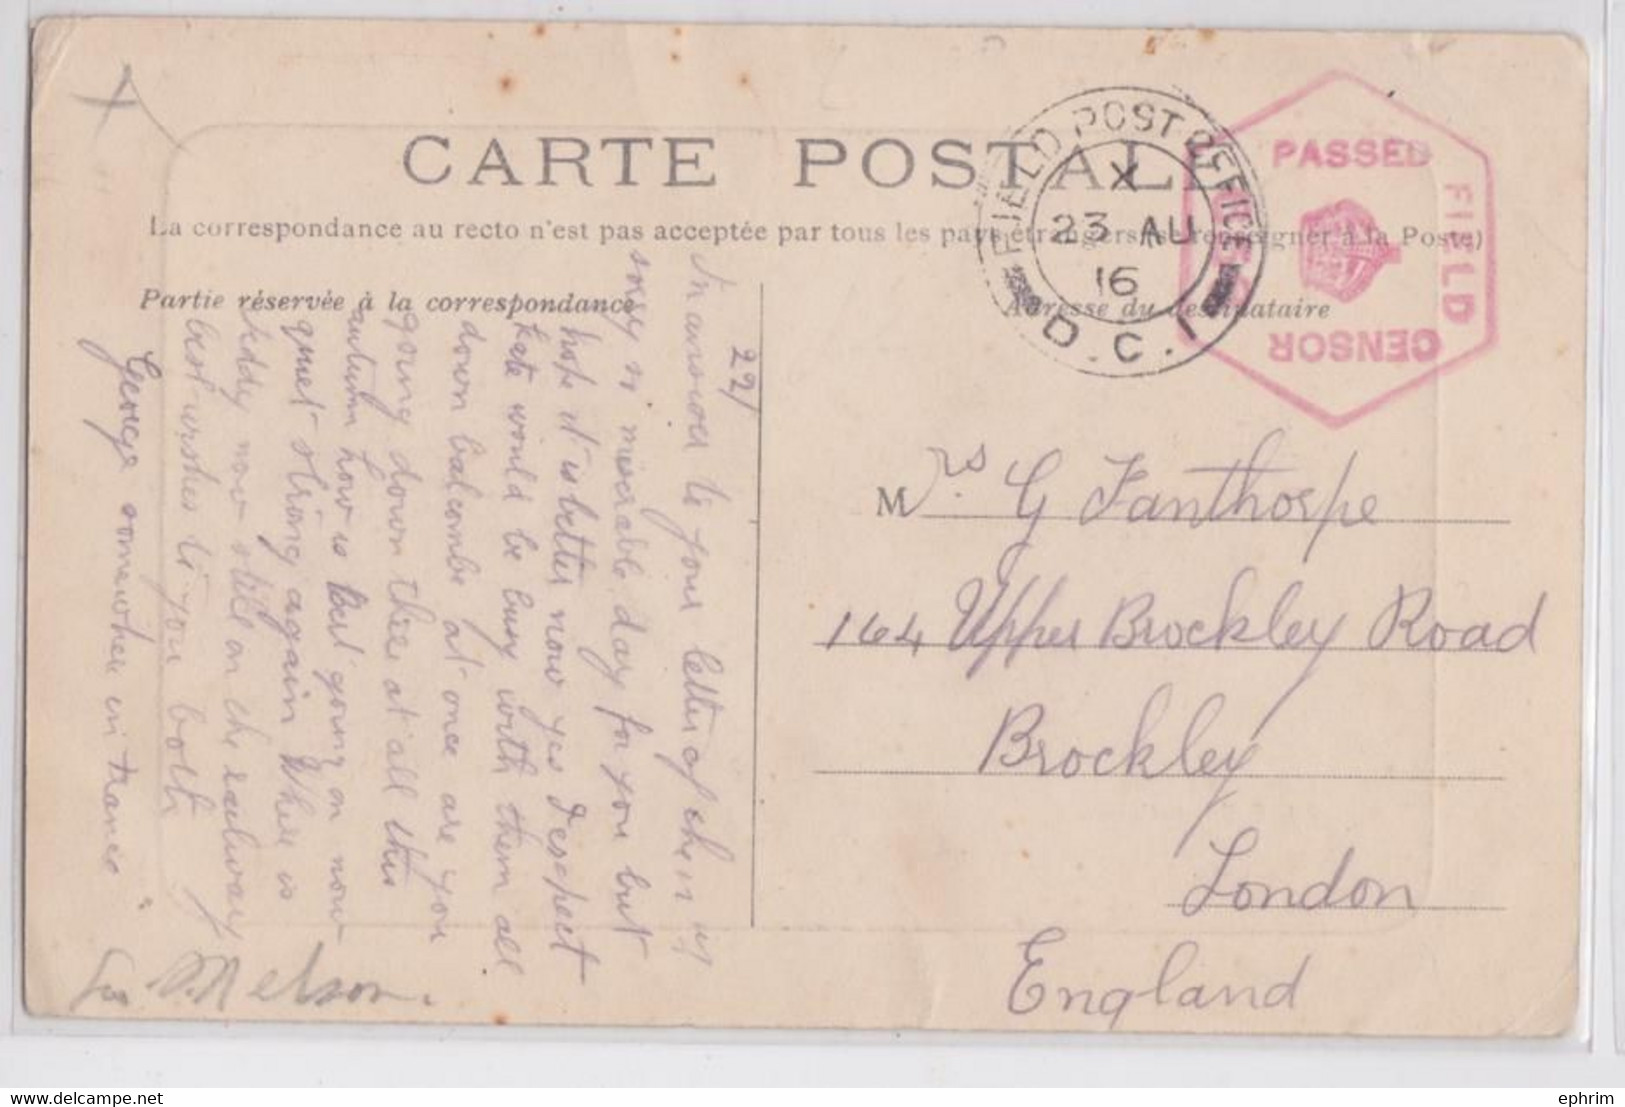 CARTE POSTALE
La correspondance au recto n'est pas acceptée par tous les pays étrangers (se renseigner à la Poste)
Partie réservée à la correspondance
Adresse du destinataire
FIELD POST OFFICE
X
23 AU
16
D.C.1
PASSED
FIELD
CENSOR
221
In answer to your letter of the
sorry so miserable day for you but
hope it is better now yes I expect
Kate would be busy with them all
down Balcombe at once are you
going down there at all this
autumn how is Bert going on now
quiet strong again Where is
Teddy now still on the railway
best wishes to you both
George somewhere in France
Nelson.
Mrs G Fanthorpe
164 Upper Brockley Road
Brockley
London
England
ephrim